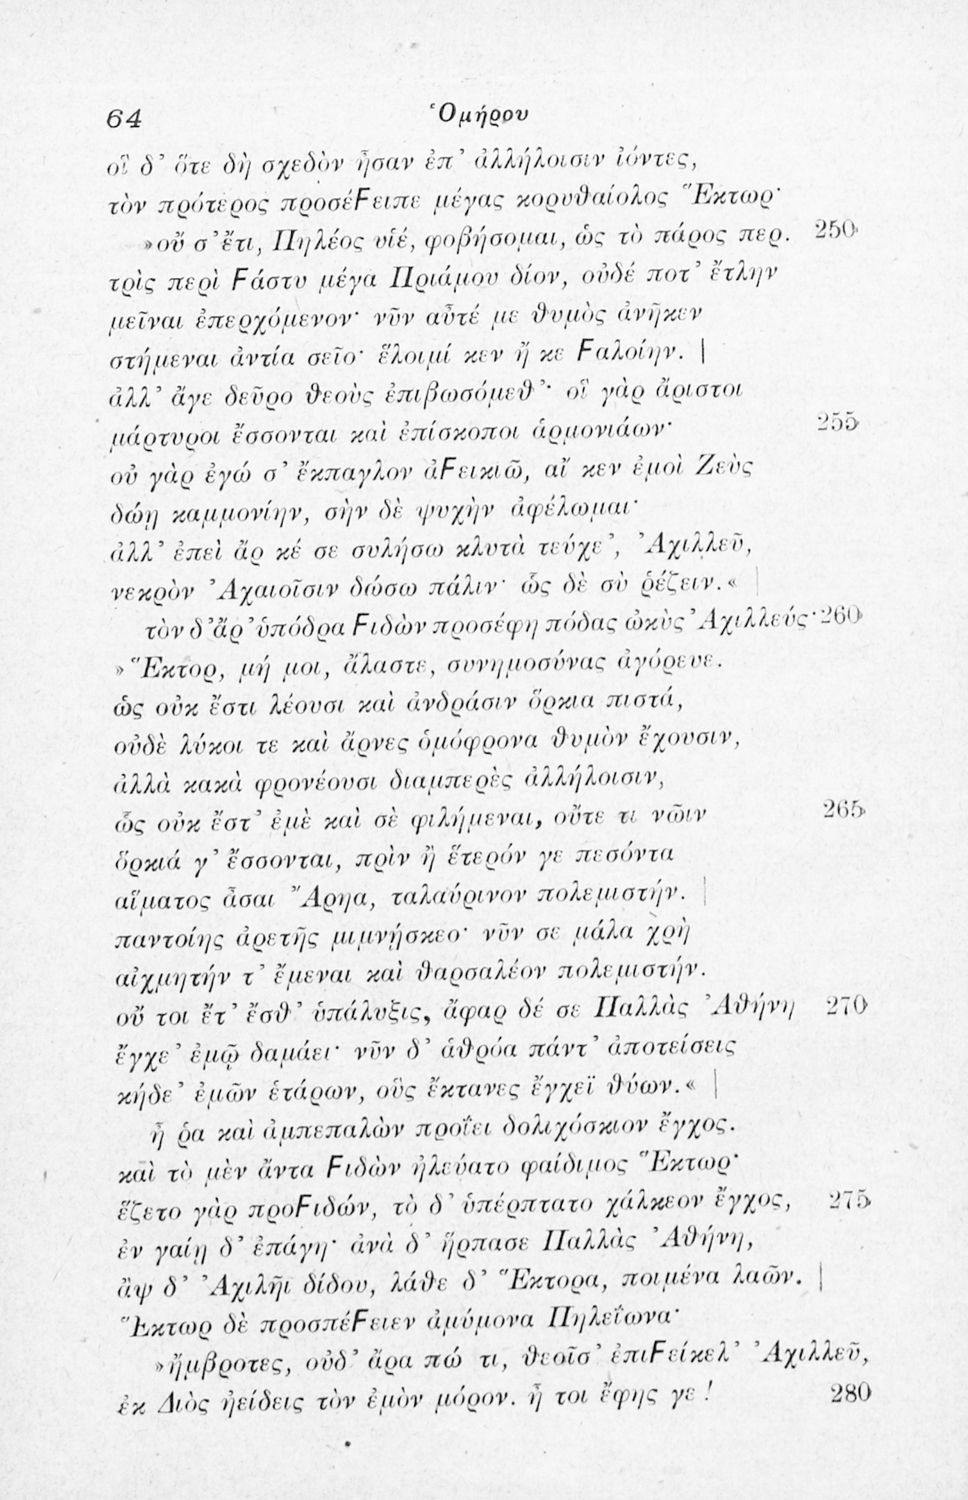 64 Ὁμήρου
οἳ δ’ ὅτε δὴ σχεδὸν ἦσαν ἐπ’ ἀλλήλοισιν ἰόντες,
τὸν πρότερος προσέϜειπε μέγας κορυθαίολος Ἕκτωρ·
»οὔ σ’ ἔτι, Πηλέος υἱέ, φοβήσομαι, ὡς τὸ πάρος περ. 250
τρὶς περὶ Ϝάστυ μέγα Πριάμου δίον, οὐδέ ποτ’ ἔτλην
μεῖναι ἐπερχόμενον· νῦν αὖτέ με θυμὸς ἀνῆκεν
στήμεναι ἀντία σεῖο· ἕλοιμί κεν ἤ κε Ϝαλοίην. |
ἀλλ’ ἄγε δεῦρο θεοὺς ἐπιβωσόμεθ’· οἳ γὰρ ἄριστοι
μάρτυροι ἔσσονται καὶ ἐπίσκοποι ἁρμονιάων· 255
οὐ γὰρ ἐγώ σ’ ἔκπαγλον ἀϜεικιῶ, αἴ κεν ἐμοὶ Ζεὺς
δώῃ καμμονίην, σὴν δὲ ψυχὴν ἀφέλωμαι·
ἀλλ’ ἐπεὶ ἄρ κέ σε συλήσω κλυτὰ τεύχε’, Ἀχιλλεῦ,
νεκρὸν Ἀχαιοῖσιν δώσω πάλιν· ὣς δὲ σὺ ῥέζειν.« |
τὸν δ’ ἄρ’ ὑπόδρα Ϝιδὼν προσέφη πόδας ὠκὺς Ἀχιλλεύς· 260
»Ἕκτορ, μή μοι, ἄλαστε, συνημοσύνας ἀγόρευε.
ὡς οὐκ ἔστι λέουσι καὶ ἀνδράσιν ὅρκια πιστά,
οὐδὲ λύκοι τε καὶ ἄρνες ὁμόφρονα θυμὸν ἔχουσιν,
ἀλλὰ κακὰ φρονέουσι διαμπερὲς ἀλλήλοισιν,
ὣς οὐκ ἔστ’ ἐμὲ καὶ σὲ φιλήμεναι, οὔτε τι νῶιν 265
ὅρκιά γ’ ἔσσονται, πρὶν ἢ ἕτερόν γε πεσόντα
αἵματος ἆσαι Ἄρηα, ταλαύρινον πολεμιστήν. |
παντοίης ἀρετῆς μιμνήσκεο· νῦν σε μάλα χρὴ
αἰχμητήν τ’ ἔμεναι καὶ θαρσαλέον πολεμιστήν.
οὔ τοι ἔτ’ ἔσθ’ ὑπάλυξις, ἄφαρ δέ σε Παλλὰς Ἀθήνη 270
ἔγχε’ ἐμῷ δαμάει· νῦν δ’ ἁθρόα πάντ’ ἀποτείσεις
κήδε’ ἐμῶν ἑτάρων, οὓς ἔκτανες ἔγχεϊ θύων.« |
ἦ ῥα καὶ ἀμπεπαλὼν προΐει δολιχόσκιον ἔγχος.
καὶ τὸ μὲν ἄντα Ϝιδὼν ἠλεύατο φαίδιμος Ἕκτωρ·
ἕζετο γὰρ προϜιδών, τὸ δ’ ὑπέρπτατο χάλκεον ἔγχος, 275
ἐν γαίῃ δ’ ἐπάγη· ἀνὰ δ’ ἥρπασε Παλλὰς Ἀθήνη,
ἂψ δ’ Ἀχιλῆι δίδου, λάθε δ’ Ἕκτορα, ποιμένα λαῶν. |
Ἕκτωρ δὲ προσπέϜειεν ἀμύμονα Πηλεΐωνα·
»ἤμβροτες, οὐδ’ ἄρα πώ τι, θεοῖσ’ ἐπιϜείκελ’ Ἀχιλλεῦ,
ἐκ Διὸς ἠείδεις τὸν ἐμὸν μόρον. ἦ τοι ἔφης γε! 280